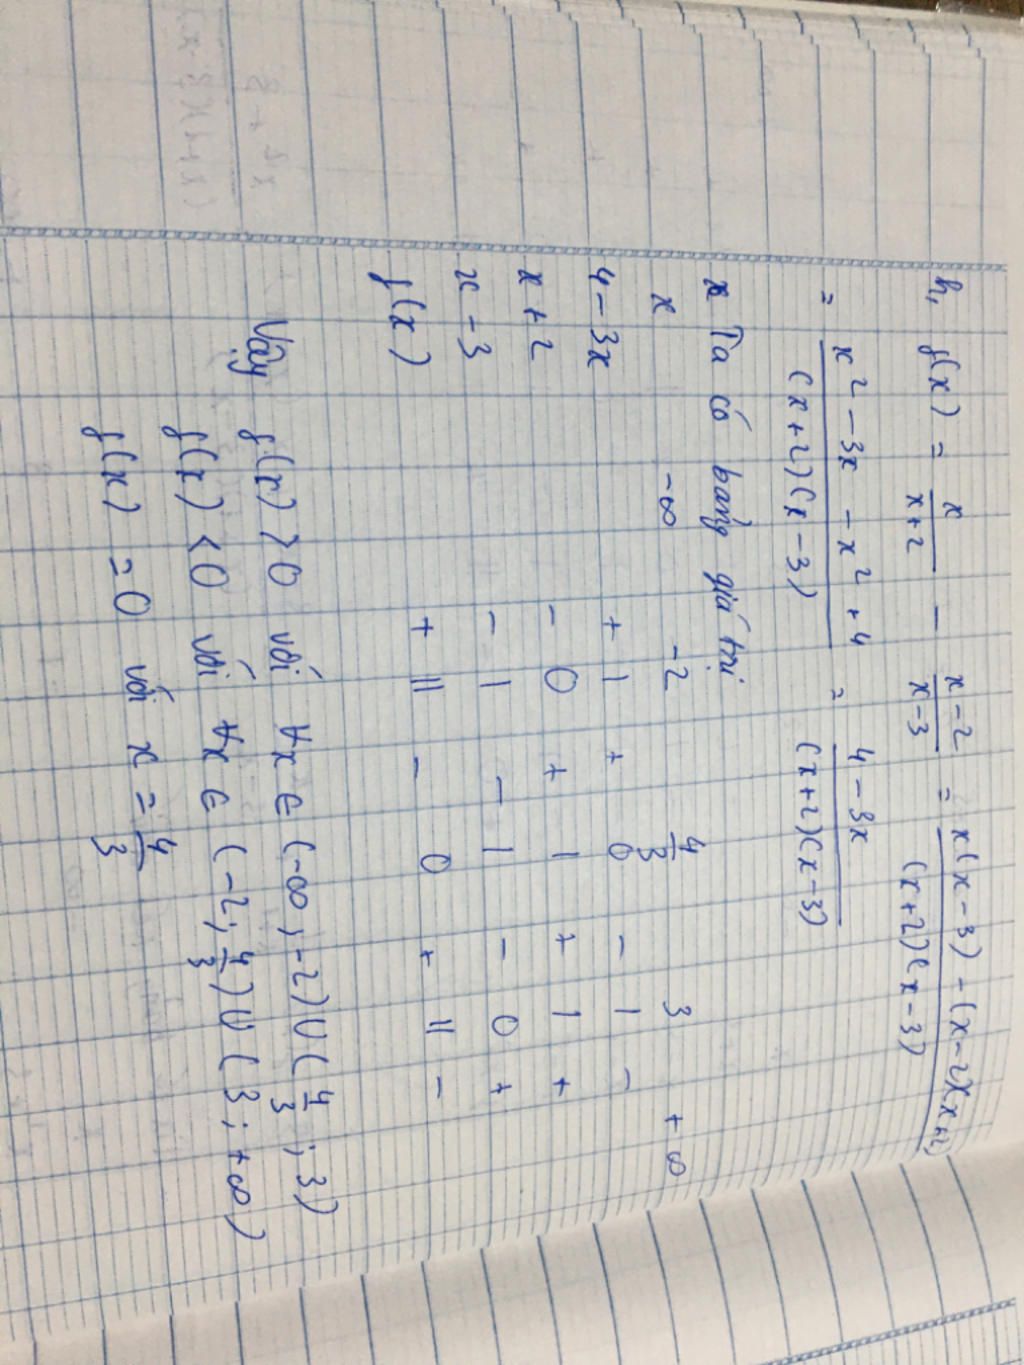 h, f(x) = x/(x+2) - (x-2)/(x-3) = (x(x-3) - (x-2)(x+2))/((x+2)(x-3))
= (x² - 3x - x² + 4)/((x+2)(x-3)) = (4-3x)/((x+2)(x-3))
Ta có bảng giá trị
x -∞ -2 4/3 3 +∞
4-3x + | + 0 - | -
x+2 - 0 + | + | +
x-3 - | - | - 0 +
f(x) + || - 0 + || -
Vậy f(x) > 0 với ∀x ∈ (-∞, -2) U (4/3 ; 3)
f(x) < 0 với ∀x ∈ (-2; 4/3) U (3; +∞)
f(x) = 0 với x = 4/3